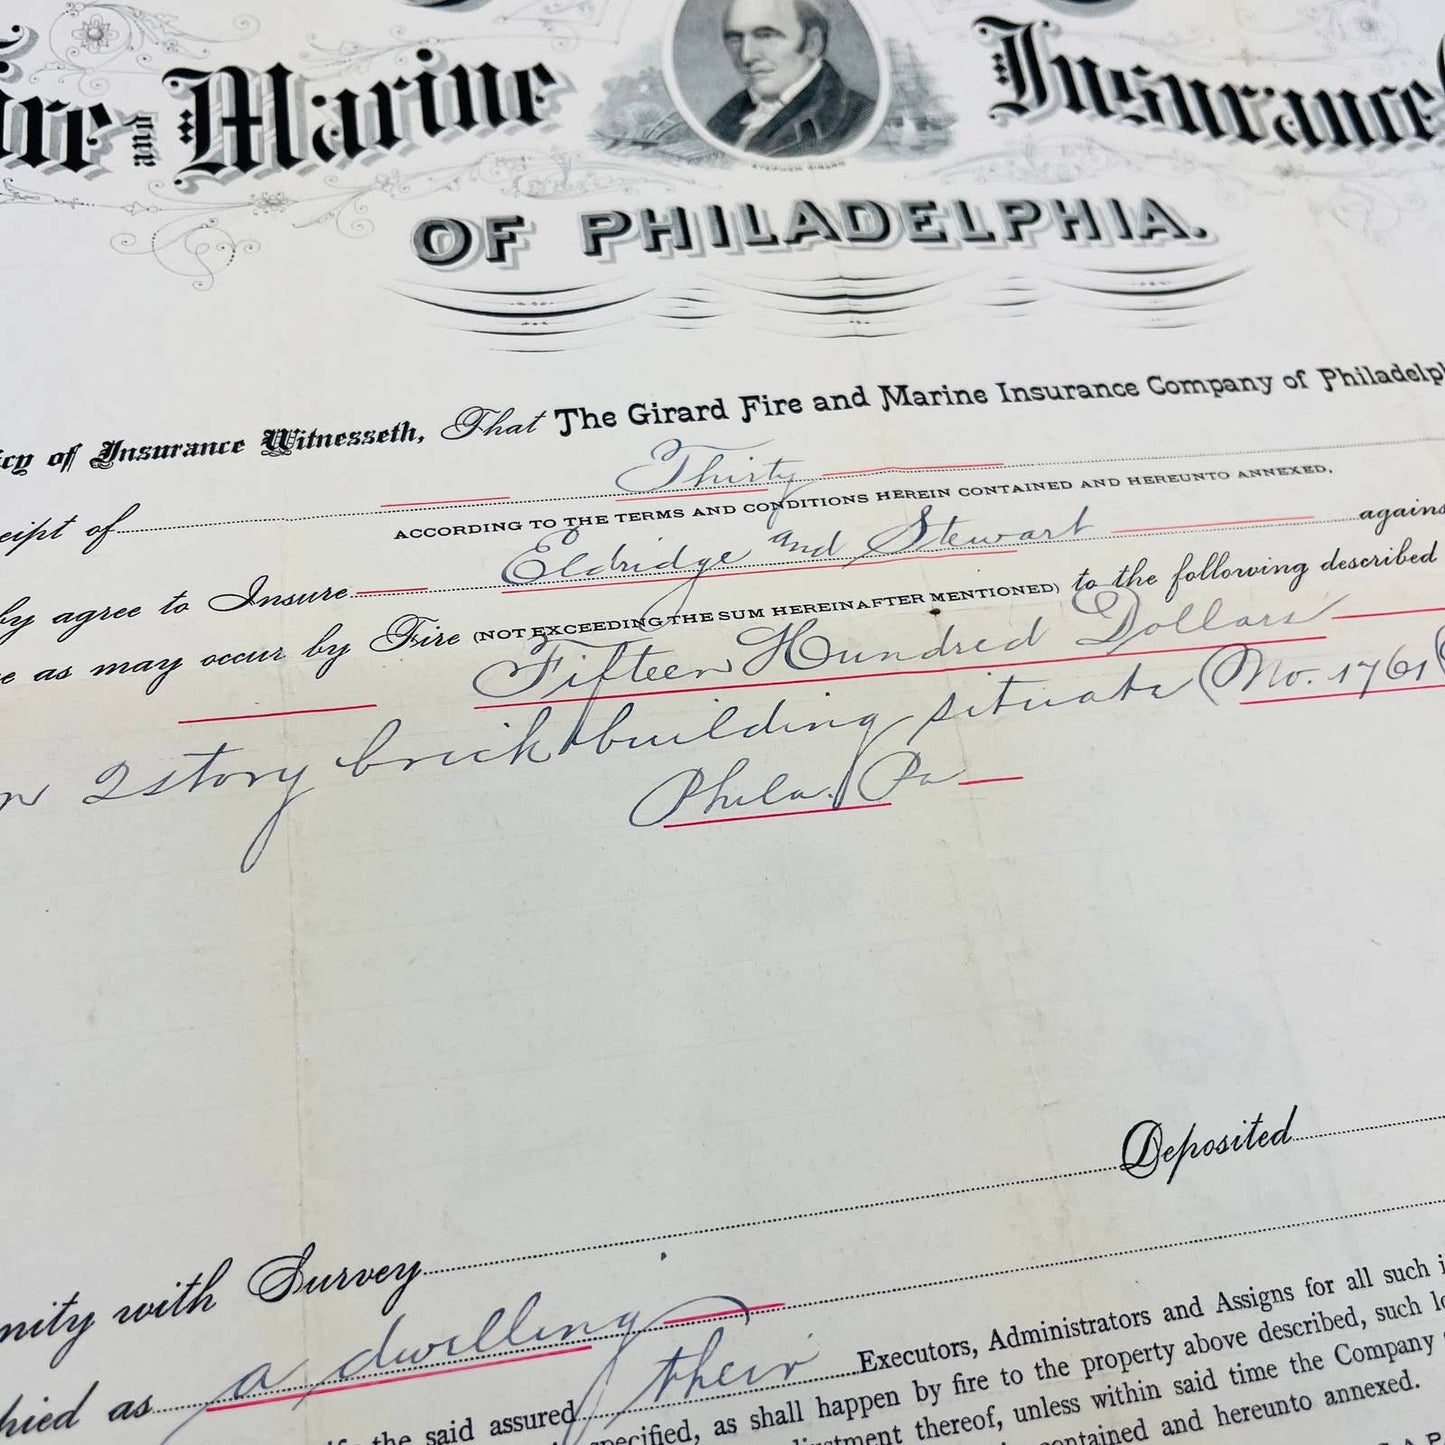 Fire and Marine Insurance
STEPHEN GIRARD
OF PHILADELPHIA.
of Insurance Witnesseth, That The Girard Fire and Marine Insurance Company of
of Thirty
ACCORDING TO THE TERMS AND CONDITIONS HEREIN CONTAINED AND HEREUNTO ANNEXED,
by agree to Insure Eldridge and Stewart agains
e as may occur by Fire (NOT EXCEEDING THE SUM HEREINAFTER MENTIONED) to the following described
Fifteen Hundred Dollars
2 story brick building situate (No. 1761
Phila. Pa
Deposited
mity with Survey
pied as a dwelling
the said assured their Executors, Administrators and Assigns for all such
specified, as shall happen by fire to the property above described, such
thereof, unless within said time the Company
contained and hereunto annexed.